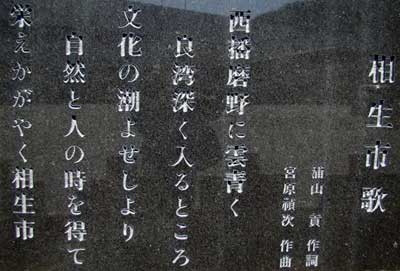 相生市歌
蒲山貢 作詞
宮原禎次 作曲
西播磨野に雲青く
良湾深く入るところ
文化の潮よせしより
自然と人の時を得て
栄えかがやく相生市